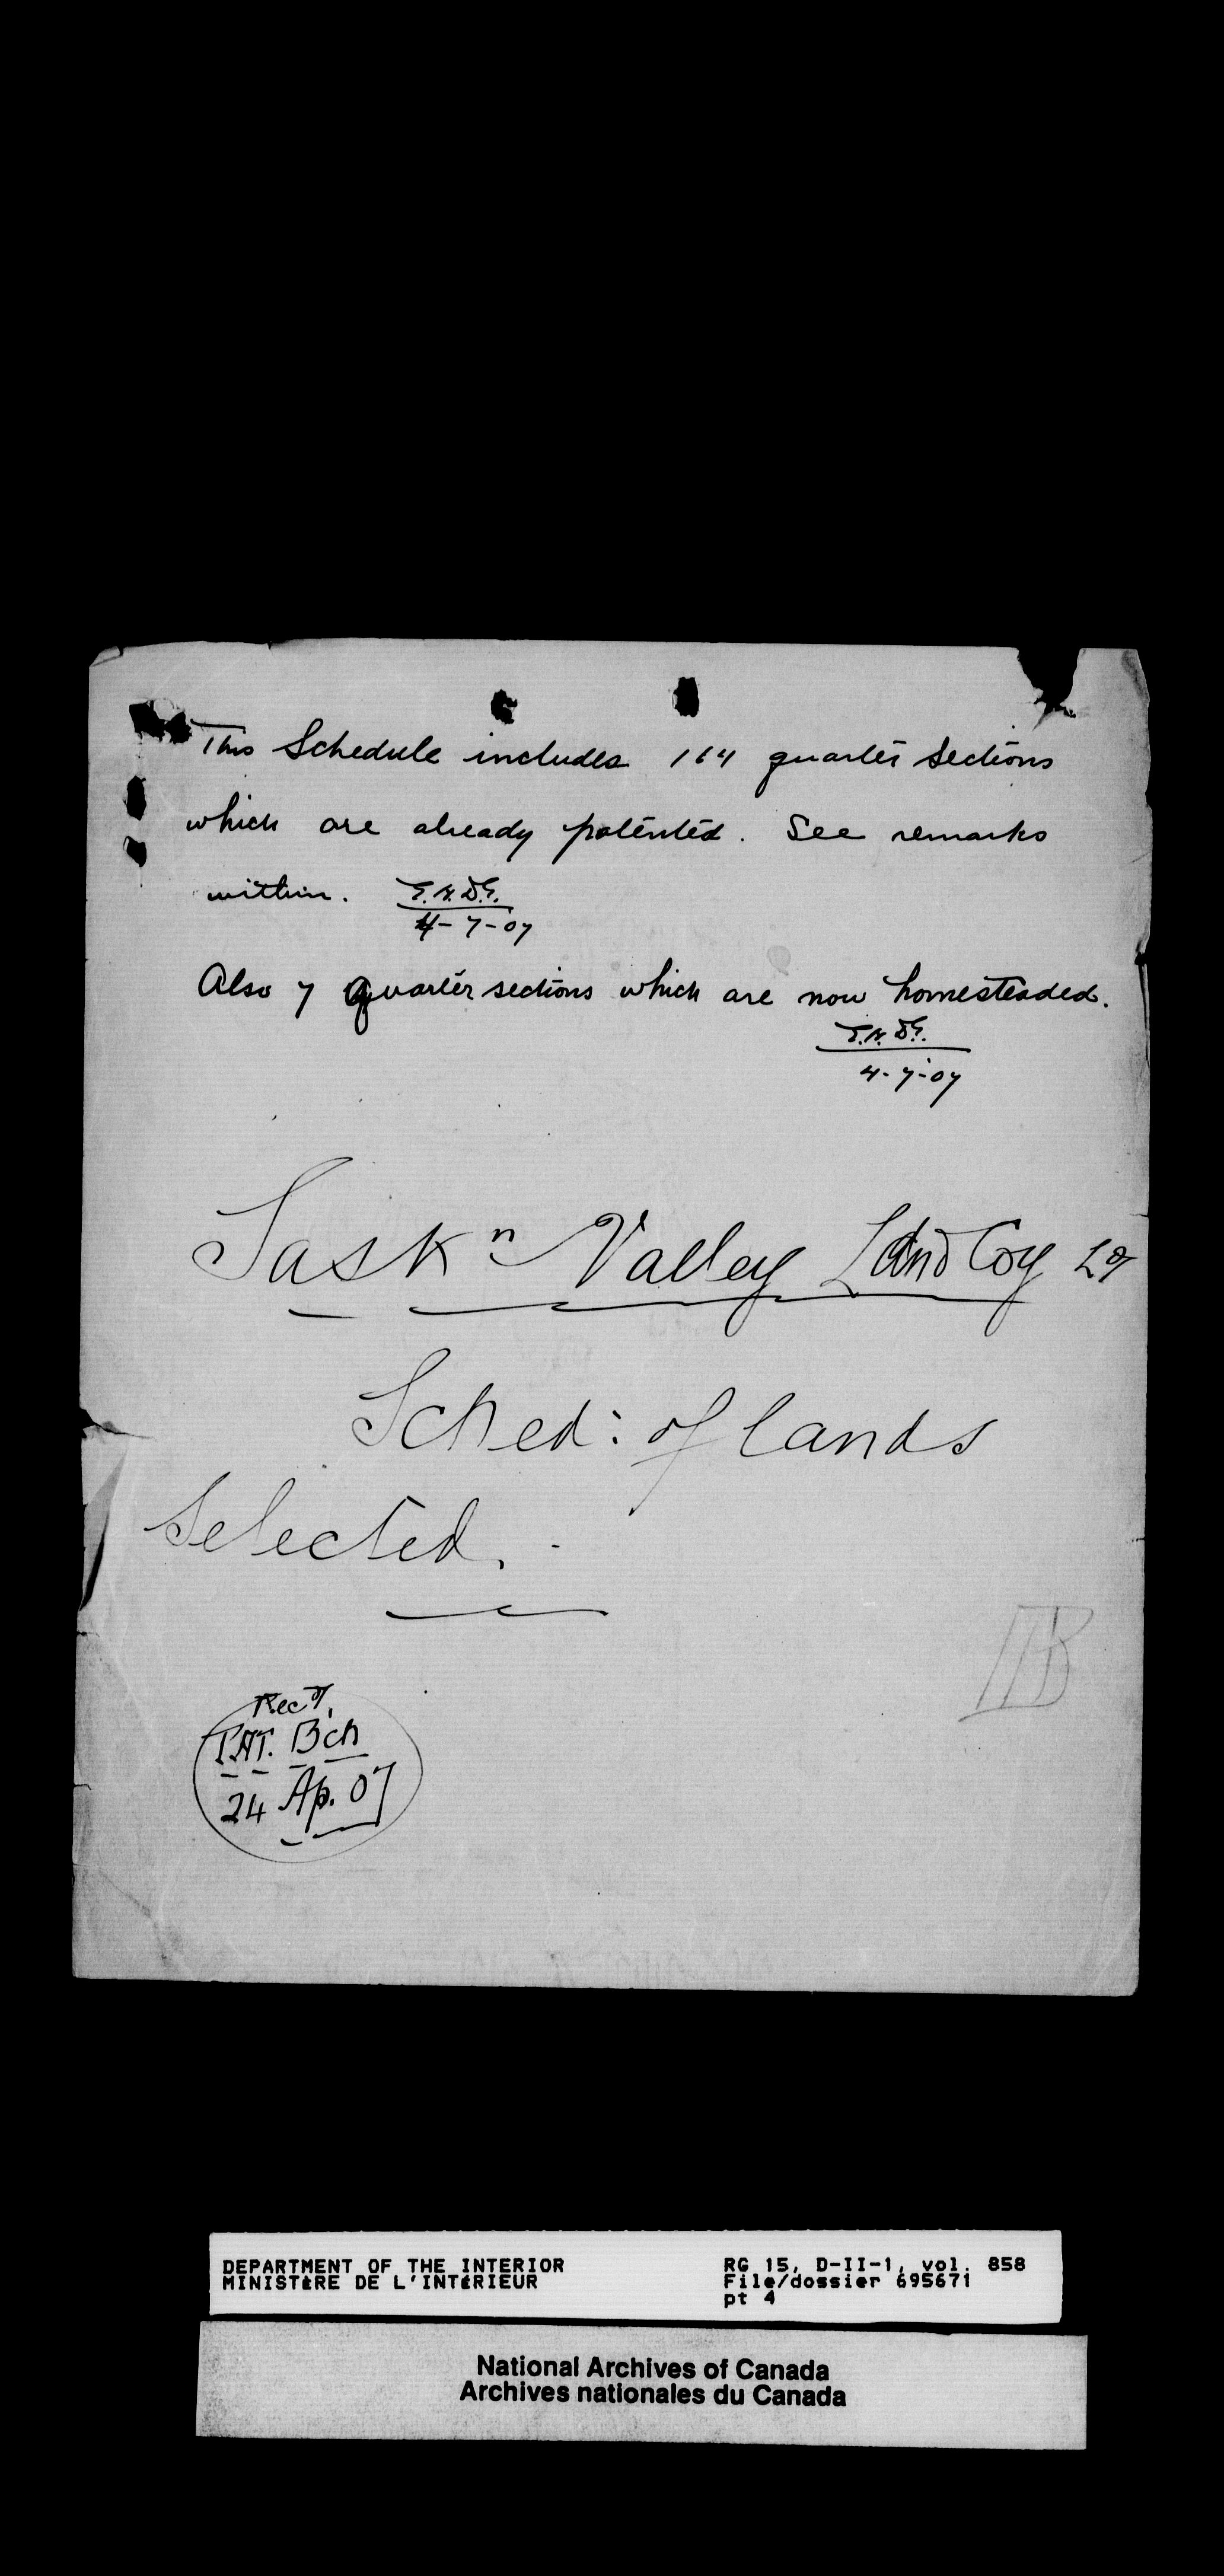 This Schedule includes 164 quarter sections
which are already patented. See remarks
within.
4-7-07
Also 7 Quarter sections which are now homesteaded.
4-7-07
Saskn Valley Land Coy Ld
Sched: of lands
Selected.
Recd.
PAT. Bch
24 Ap. 07
DEPARTMENT OF THE INTERIOR
MINISTÈRE DE L'INTÉRIEUR
RG 15, D-II-1, vol. 858
File/dossier 695671
pt 4
National Archives of Canada
Archives nationales du Canada